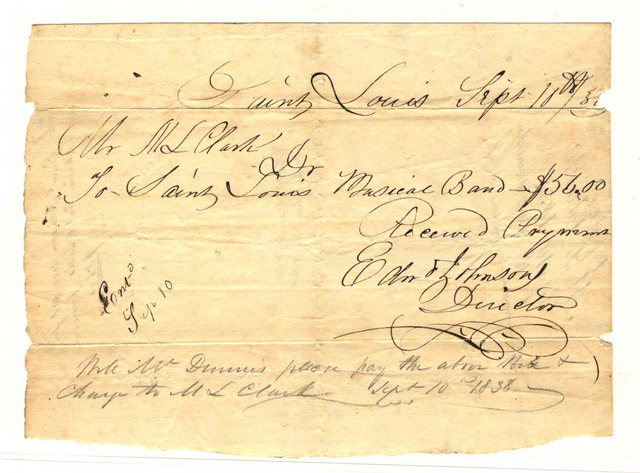 Saint Louis Sept 10th/38
Mr M L Clark Dr
To Saint Louis Musical Band - $56.00
Received Payment
Edwd Johnson
Director
Entd
Sep 10
Will Mr please pay the above &
Charge to M L Clark Sept 10th 1838